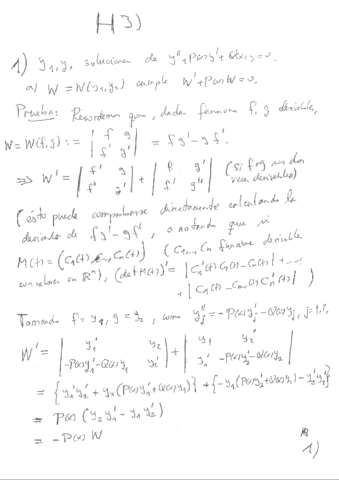 H3)
1) y₁, y₂ soluciones de y''+P(x)y'+Q(x)y=0.
a) W = W(y₁,y₂) cumple W'+P(x)W=0.
Prueba: Recordemos que, dadas funciones f, g derivables,
W=W(f,g) := | f g ; f' g' | = fg'-gf'.
⇒ W' = | f' g ; f' g' | + | f g' ; f' g'' | (si f, g son dos veces derivables)
(ésto puede comprobarse directamente calculando la
derivada de fg'-gf', o notando que si
M(t)=(C₁(t),...,Cₙ(t)) (C₁,...,Cₙ funciones derivables
con valores en ℝⁿ), (det M(t))' = |C₁'(t) C₂(t)...Cₙ(t)| + ...
+ |C₁(t)...Cₙ₋₁(t) Cₙ'(t)| )
Tomando f=y₁, g=y₂, como yⱼ''=-P(x)yⱼ'-Q(x)yⱼ, j=1,2,
W' = | y₁' y₂ ; -P(x)y₁'-Q(x)y₁ y₂' | + | y₁ y₂' ; y₁' -P(x)y₂'-Q(x)y₂ |
= {y₁'y₂'+y₂(P(x)y₁'+Q(x)y₁)} + {-y₁(P(x)y₂'+Q(x)y₂)-y₂'y₁'}
= P(x)(y₂y₁'-y₁y₂')
= -P(x)W
1)